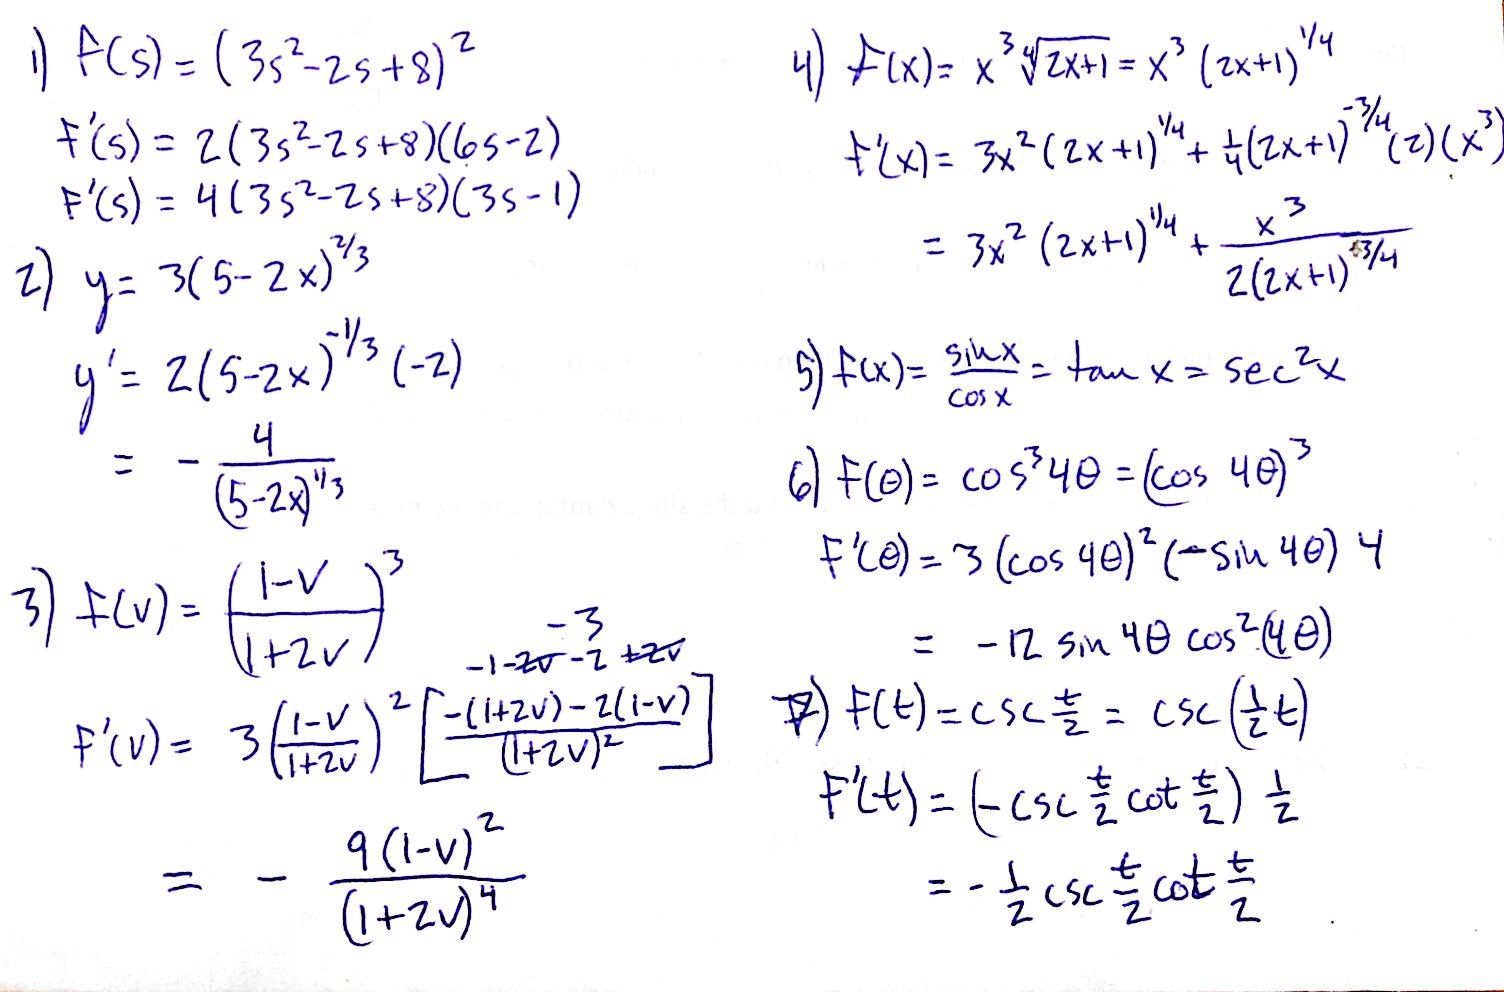 1) f(s) = (3s²-2s+8)²
f'(s) = 2(3s²-2s+8)(6s-2)
F'(s) = 4(3s²-2s+8)(3s-1)
2) y = 3(5-2x)^2/3
y' = 2(5-2x)^-1/3 (-2)
= - 4/(5-2x)^1/3
3) f(v) = ((1-v)/(1+2v))³
-3
-1-2v-2+2v
F'(v) = 3((1-v)/(1+2v))² [(-(1+2v)-2(1-v))/(1+2v)²]
= - 9(1-v)²/(1+2v)⁴
4) f(x) = x³ ⁴√(2x+1) = x³ (2x+1)^1/4
f'(x) = 3x²(2x+1)^1/4 + 1/4(2x+1)^-3/4 (2)(x³)
= 3x² (2x+1)^1/4 + x³/(2(2x+1)^3/4)
5) f(x) = sin x/cos x = tan x = sec²x
6) F(θ) = cos³4θ = (cos 4θ)³
F'(θ) = 3(cos 4θ)² (-sin 4θ) 4
= -12 sin 4θ cos²(4θ)
7) F(t) = csc t/2 = csc(1/2 t)
F'(t) = (-csc t/2 cot t/2) 1/2
= -1/2 csc t/2 cot t/2